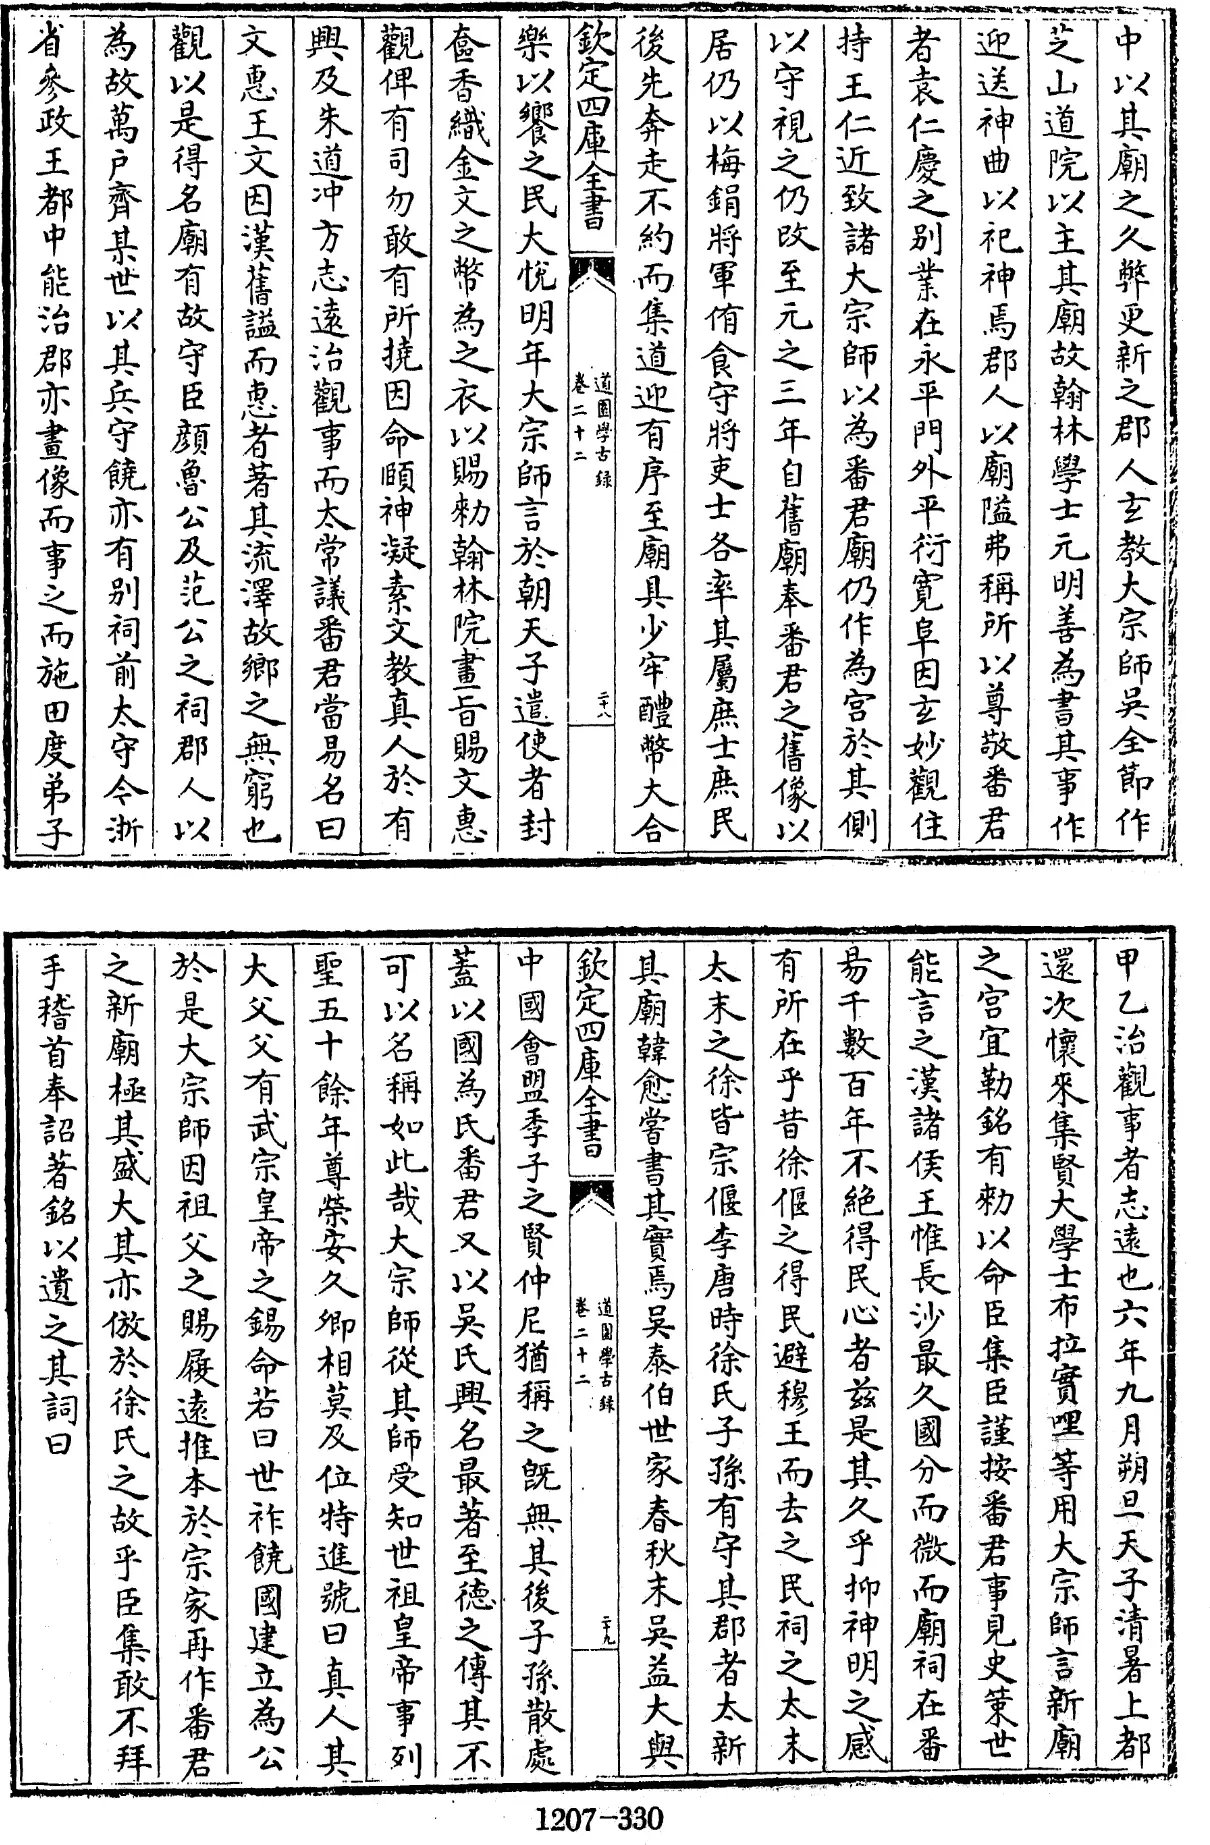 中以其廟之久弊更新之郡人玄教大宗師吳全節作
芝山道院以主其廟故翰林學士元明善為書其事作
迎送神曲以祀神焉郡人以廟隘弗稱所以尊敬番君
者袁仁慶之别業在永平門外平衍寛阜因玄妙觀住
持王仁近致諸大宗師以為番君廟仍作為宮於其側
以守視之仍改至元之三年自舊廟奉番君之舊像以
居仍以梅鋗將軍侑食守將吏士各率其屬庶士庶民
後先奔走不約而集道迎有序至廟具少牢醴幣大合
欽定四庫全書
道園學古録
卷二十二
二十八
樂以饗之民大悅明年大宗師言於朝天子遣使者封
奩香織金文之幣為之衣以賜勑翰林院畫旨賜文惠
觀俾有司勿敢有所撓因命頤神凝素文教真人於有
興及朱道冲方志遠治觀事而太常議番君當易名曰
文惠王文因漢舊謚而惠者著其流澤故鄉之無窮也
觀以是得名廟有故守臣顔魯公及范公之祠郡人以
為故萬户齊某世以其兵守饒亦有别祠前太守今浙
省參政王都中能治郡亦畫像而事之而施田度弟子
甲乙治觀事者志遠也六年九月朔旦天子清暑上都
還次懷來集賢大學士布拉實哩等用大宗師言新廟
之宮宜勒銘有勑以命臣集臣謹按番君事見史策世
能言之漢諸侯王惟長沙最久國分而微而廟祠在番
昜千數百年不絶得民心者兹是其久乎抑神明之感
有所在乎昔徐偃之得民避穆王而去之民祠之太末
太末之徐皆宗偃李唐時徐氏子孫有守其郡者太新
其廟韓愈嘗書其實焉吳泰伯世家春秋末吳益大與
欽定四庫全書
道園學古録
卷二十二
二十九
中國會盟季子之賢仲尼猶稱之旣無其後子孫散處
蓋以國為氏番君又以吳氏興名最著至德之傳其不
可以名稱如此哉大宗師從其師受知世祖皇帝事列
聖五十餘年尊榮安久卿相莫及位特進號曰真人其
大父父有武宗皇帝之錫命若曰世祚饒國建立為公
於是大宗師因祖父之賜履遠推本於宗家再作番君
之新廟極其盛大其亦倣於徐氏之故乎臣集敢不拜
手稽首奉詔著銘以遺之其詞曰
1207-330